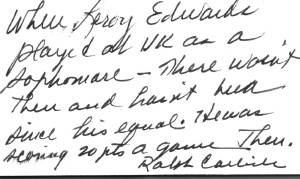 When Leroy Edwards
played at UK as a
sophomore — There wasn't
then and hasn't been
since his equal. He was
scoring 20 pts a game Then.
Ralph Carlisle